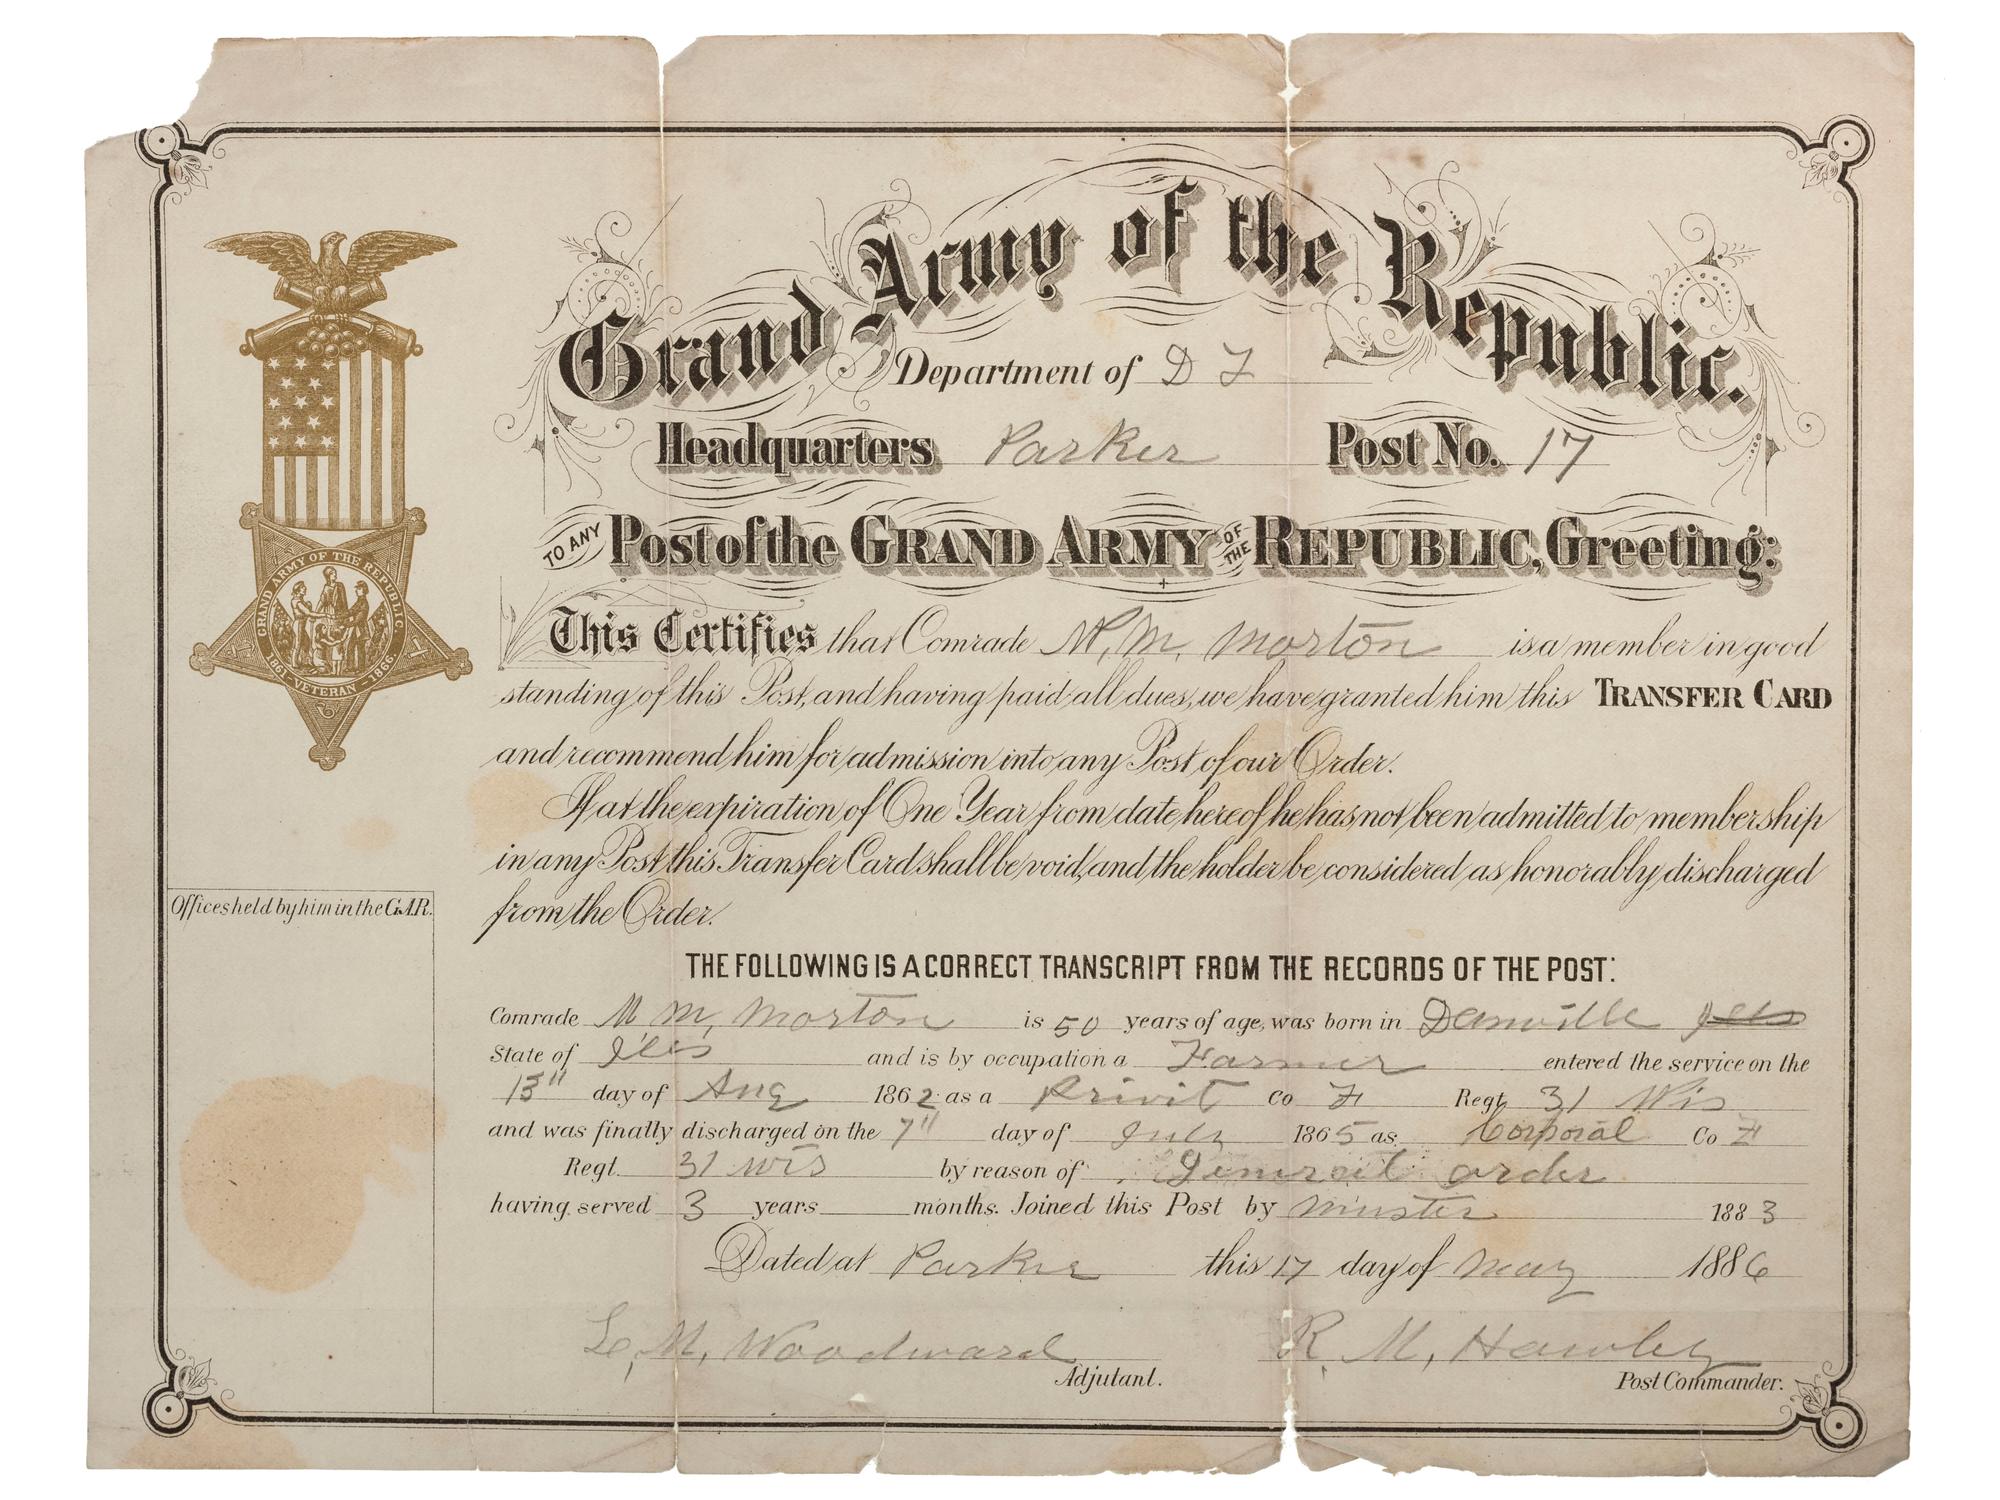 Grand Army of the Republic.
Department of D T
Headquarters Parker Post No. 17
TO ANY Post of the GRAND ARMY OF THE REPUBLIC, Greeting:
This Certifies that Comrade M. M. Morton is a member in good
standing of this Post, and having paid all dues, we have granted him this TRANSFER CARD
and recommend him for admission into any Post of our Order.
If at the expiration of One Year from date hereof he has not been admitted to membership
in any Post this Transfer Card shall be void, and the holder be considered as honorably discharged
from the Order.
GRAND ARMY OF THE REPUBLIC
1861 - VETERAN - 1866
Offices held by him in the G.A.R.
THE FOLLOWING IS A CORRECT TRANSCRIPT FROM THE RECORDS OF THE POST:
Comrade M M, Morton is 50 years of age, was born in Danville Ills
State of Ills and is by occupation a Farmer entered the service on the
day of Aug 1862 as a Privit Co F Regt 31 Wis
and was finally discharged on the 7" day of July 1865 as Corporal Co F
Regt. 31 Wis by reason of General order
having served 3 years months. Joined this Post by muster 1883
Dated at Parker this 17 day of May 1886
L, M, Woodward R. M, Hawley
Adjutant. Post Commander.